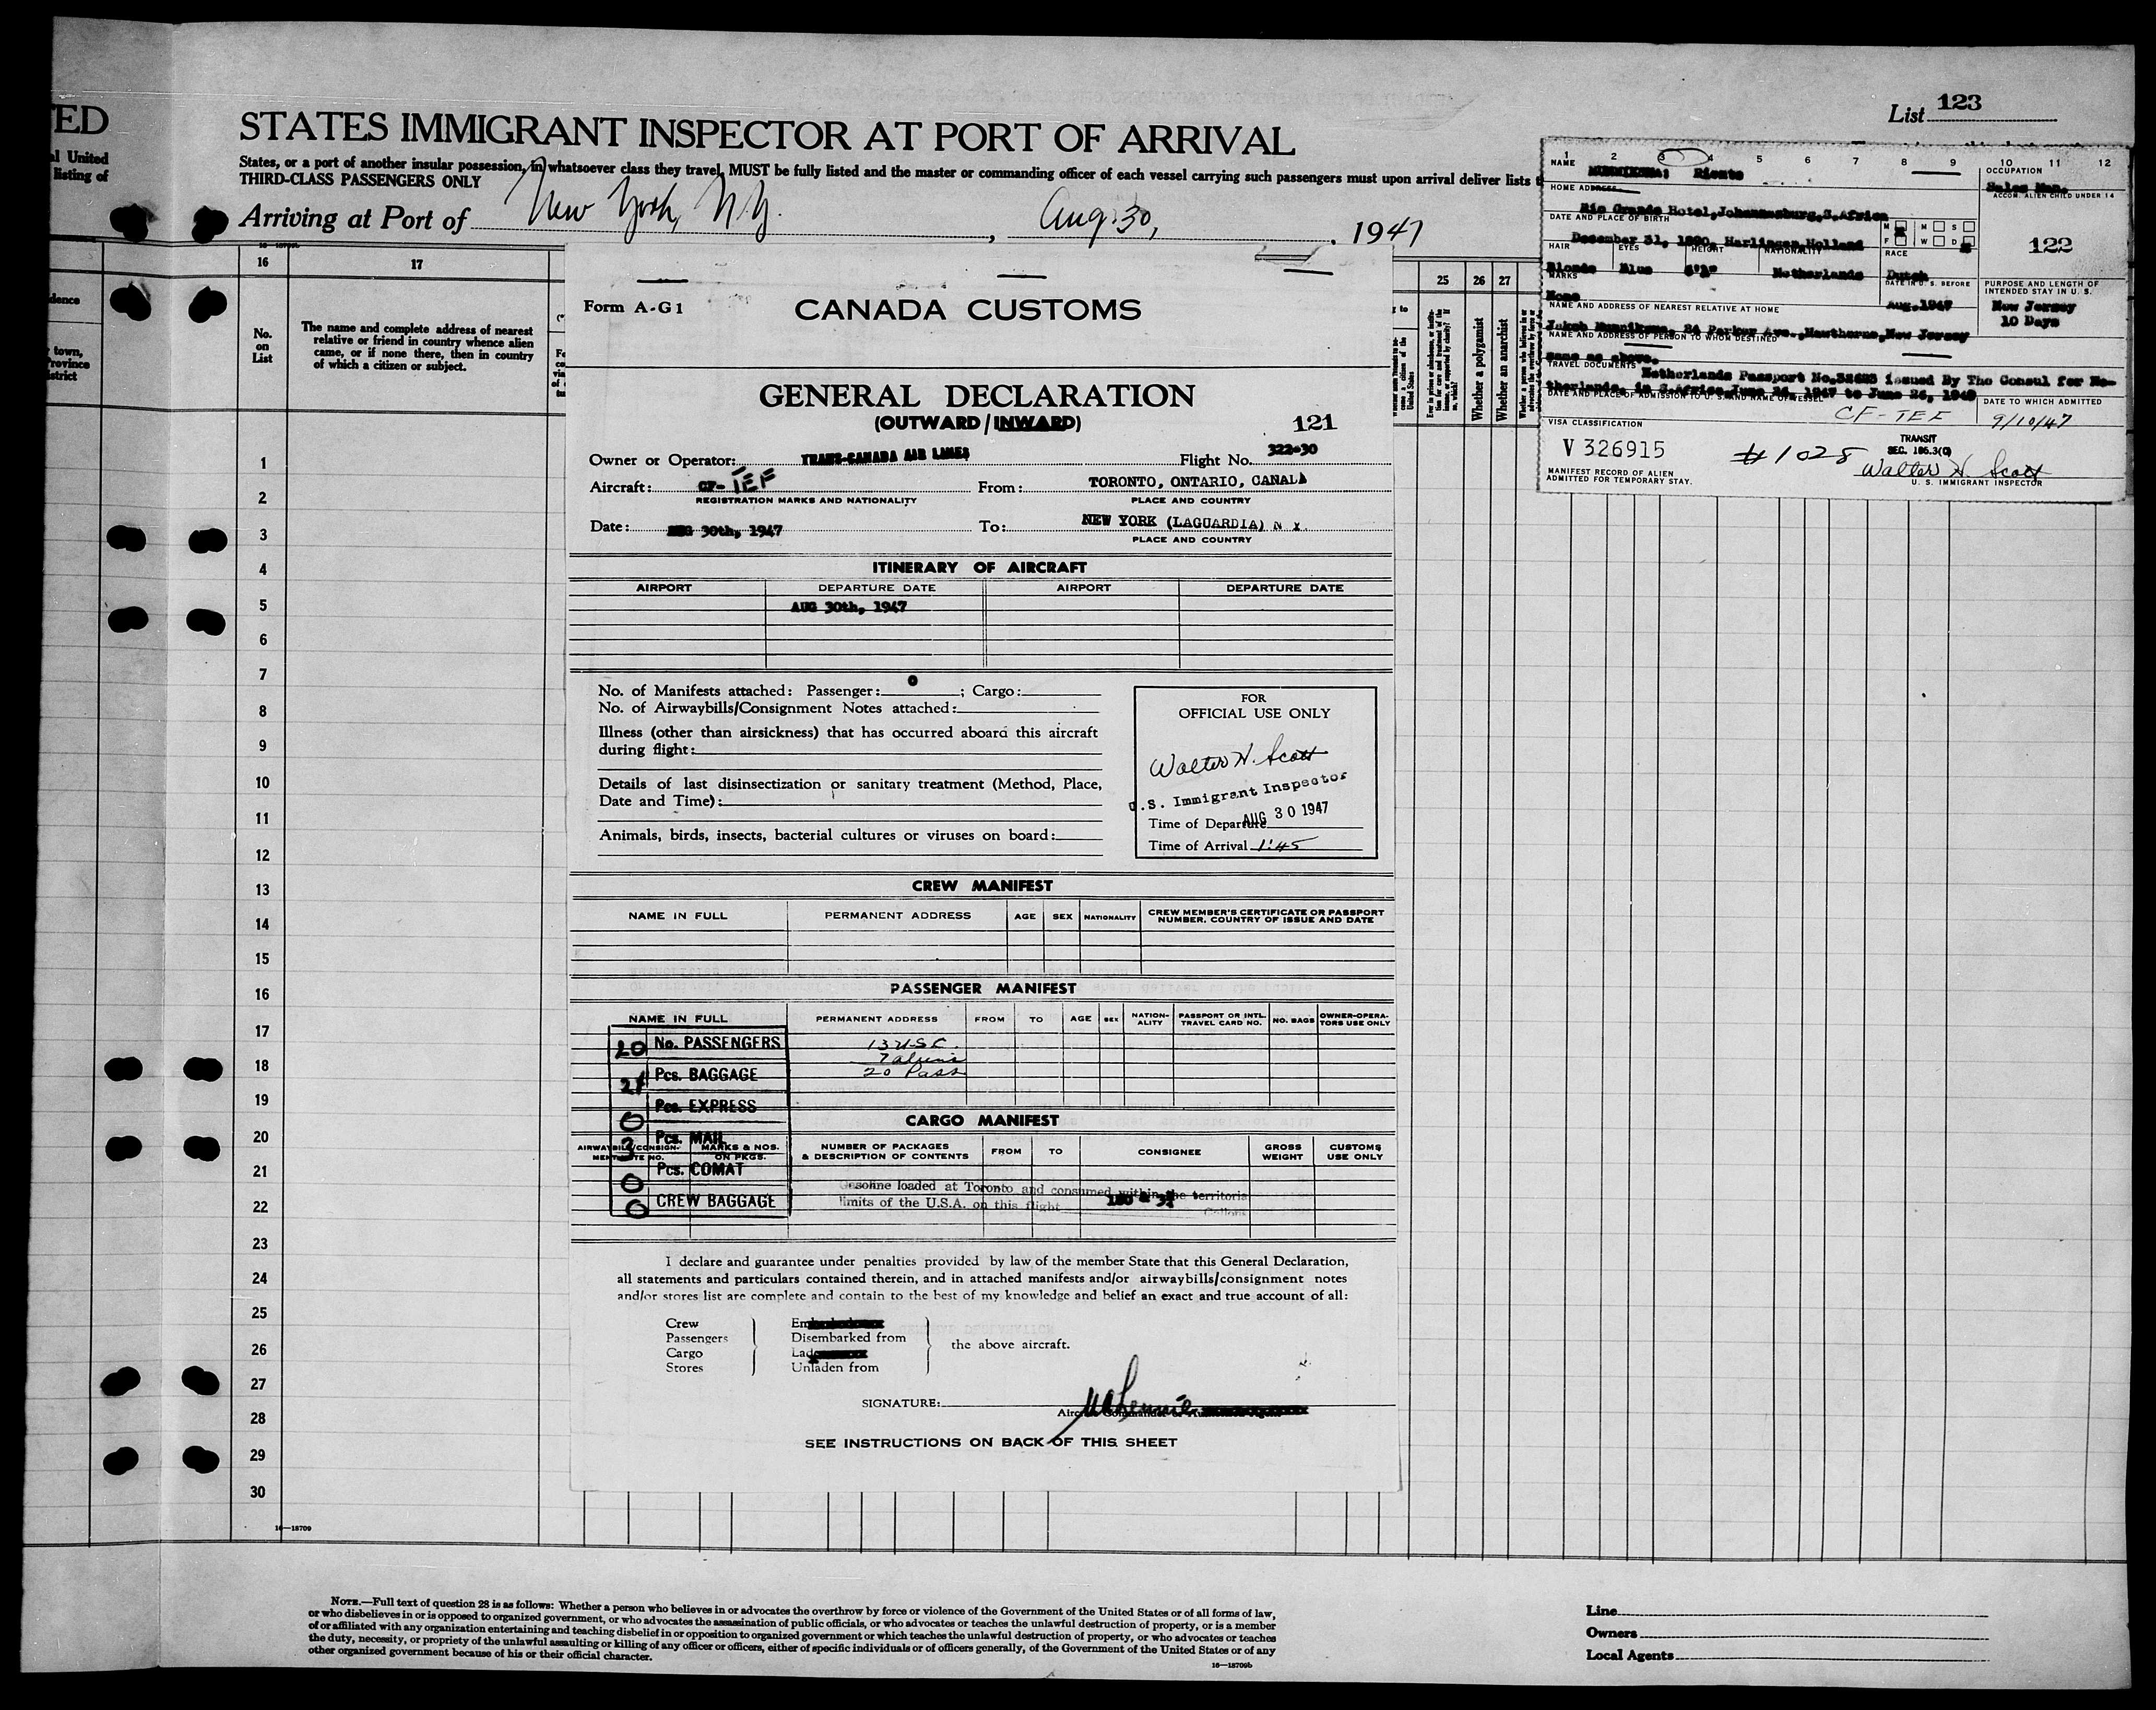 TED
al United
listing of
dence
town,
Province
istrict
List 123
STATES IMMIGRANT INSPECTOR AT PORT OF ARRIVAL
States, or a port of another insular possession, in whatsoever class they travel, MUST be fully listed and the master or commanding officer of each vessel carrying such passengers must upon arrival deliver lists
THIRD-CLASS PASSENGERS ONLY
Arriving at Port of New York, N.Y. , Aug. 30, , 1947
16 17 25 26 27
No. on List
The name and complete address of nearest
relative or friend in country whence alien
came, or if none there, then in country
of which a citizen or subject.
Whether a polygamist
Whether an anarchist
1
2
3
4
5
6
7
8
9
10
11
12
13
14
15
16
17
18
19
20
21
22
23
24
25
26
27
28
29
30
16—18709
Form A-G1
CANADA CUSTOMS
GENERAL DECLARATION
(OUTWARD / INWARD)
121
Owner or Operator: TRANS-CANADA AIR LINES Flight No. 322-30
Aircraft: CF-TEF From: TORONTO, ONTARIO, CANADA
REGISTRATION MARKS AND NATIONALITY PLACE AND COUNTRY
Date: AUG 30th, 1947 To: NEW YORK (LAGUARDIA) N Y.
PLACE AND COUNTRY
ITINERARY OF AIRCRAFT
AIRPORT DEPARTURE DATE AIRPORT DEPARTURE DATE
AUG 30th, 1947
No. of Manifests attached: Passenger: 0 ; Cargo:
No. of Airwaybills/Consignment Notes attached:
Illness (other than airsickness) that has occurred aboard this aircraft
during flight:
Details of last disinsectization or sanitary treatment (Method, Place,
Date and Time):
Animals, birds, insects, bacterial cultures or viruses on board:
FOR
OFFICIAL USE ONLY
Walter H. Scott
U.S. Immigrant Inspector
Time of Departure AUG 30 1947
Time of Arrival 1:45
CREW MANIFEST
NAME IN FULL PERMANENT ADDRESS AGE SEX NATIONALITY CREW MEMBER'S CERTIFICATE OR PASSPORT
NUMBER, COUNTRY OF ISSUE AND DATE
PASSENGER MANIFEST
NAME IN FULL PERMANENT ADDRESS FROM TO AGE SEX NATION-ALITY PASSPORT OR INTL. TRAVEL CARD NO. NO. BAGS OWNER-OPERA-TORS USE ONLY
20 No. PASSENGERS 13 USC
7 aliens
21 Pcs. BAGGAGE 20 Pass
0 Pcs. EXPRESS
CARGO MANIFEST
3 Pcs. MAIL
AIRWAYBILL/CONSIGN-MENT NOTE NO. MARKS & NOS. ON PKGS. NUMBER OF PACKAGES & DESCRIPTION OF CONTENTS FROM TO CONSIGNEE GROSS WEIGHT CUSTOMS USE ONLY
0 Pcs. COMAT
Gasoline loaded at Toronto and consumed within the territorial
0 CREW BAGGAGE
limits of the U.S.A. on this flight Gallons
I declare and guarantee under penalties provided by law of the member State that this General Declaration,
all statements and particulars contained therein, and in attached manifests and/or airwaybills/consignment notes
and/or stores list are complete and contain to the best of my knowledge and belief an exact and true account of all:
Crew
Passengers Disembarked from
Cargo the above aircraft.
Stores Unladen from
SIGNATURE:
SEE INSTRUCTIONS ON BACK OF THIS SHEET
1 2 3 4 5 6 7 8 9 10 11 12
NAME Rients OCCUPATION
Sales Man.
HOME ADDRESS ACCOM. ALIEN CHILD UNDER 14
Rio Grande Hotel, Johannesburg, S. Africa
DATE AND PLACE OF BIRTH M F M W S D
December 31, 1890, Harlingen, Holland 122
HAIR EYES HEIGHT NATIONALITY RACE
Blonde Blue Netherlands Dutch
MARKS DATE IN U. S. BEFORE PURPOSE AND LENGTH OF INTENDED STAY IN U. S.
None Aug. 1947 New Jersey
10 Days
NAME AND ADDRESS OF NEAREST RELATIVE AT HOME
Parker Ave., Hawthorne, New Jersey
NAME AND ADDRESS OF PERSON TO WHOM DESTINED
Same as above.
TRAVEL DOCUMENTS
Netherlands Passport issued By The Consul for Ne-
therlands, in S. Africa June 26, 1947 to June 26, 1949
DATE AND PLACE OF ADMISSION TO U. S. AND NAME OF VESSEL DATE TO WHICH ADMITTED
CF-TEF 9/10/47
VISA CLASSIFICATION
V 326915 #1028 TRANSIT
SEC. 186.3(C)
Walter H Scott
MANIFEST RECORD OF ALIEN
ADMITTED FOR TEMPORARY STAY. U. S. IMMIGRANT INSPECTOR
NOTE.—Full text of question 28 is as follows: Whether a person who believes in or advocates the overthrow by force or violence of the Government of the United States or of all forms of law,
or who disbelieves in or is opposed to organized government, or who advocates the assassination of public officials, or who advocates or teaches the unlawful destruction of property, or is a member
of or affiliated with any organization entertaining and teaching disbelief in or opposition to organized government or which teaches the unlawful destruction of property, or who advocates or teaches
the duty, necessity, or propriety of the unlawful assaulting or killing of any officer or officers, either of specific individuals or of officers generally, of the Government of the United States or of any
other organized government because of his or their official character.
16—18709b
Line
Owners
Local Agents